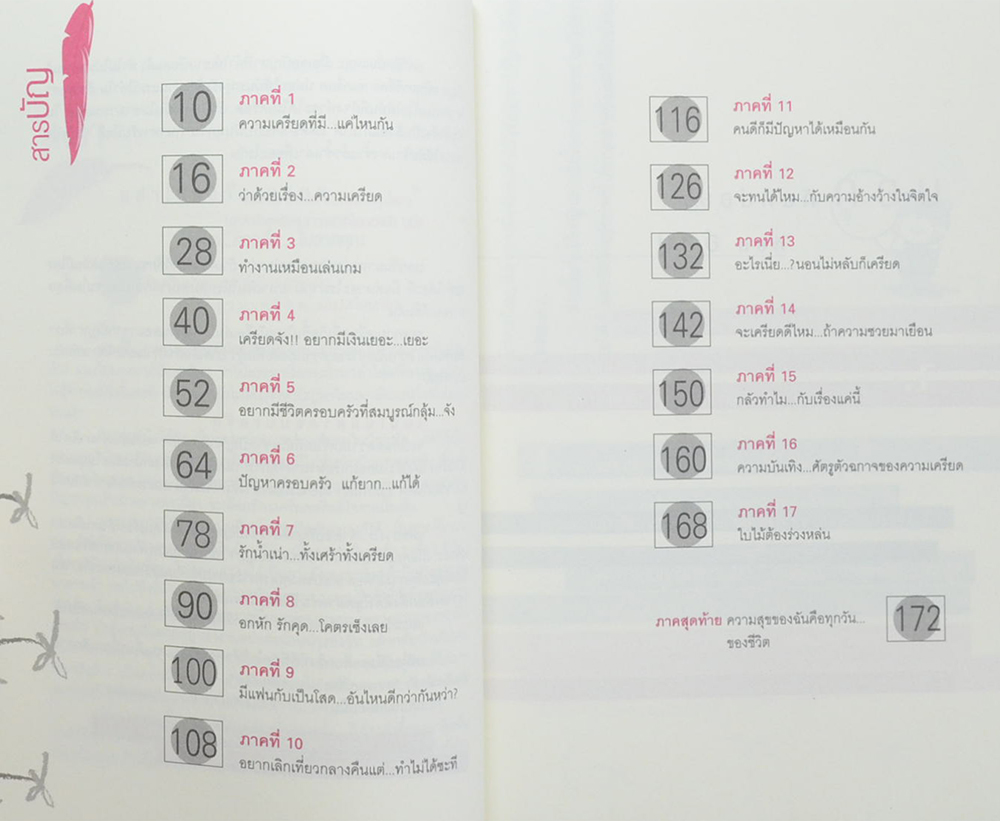 สารบัญ
10
ภาคที่ 1
ความเครียดที่มี...แค่ไหนกัน
16
ภาคที่ 2
ว่าด้วยเรื่อง...ความเครียด
28
ภาคที่ 3
ทำงานเหมือนเล่นเกม
40
ภาคที่ 4
เครียดจัง!! อยากมีเงินเยอะ...เยอะ
52
ภาคที่ 5
อยากมีชีวิตครอบครัวที่สมบูรณ์กลุ้ม...จัง
64
ภาคที่ 6
ปัญหาครอบครัว แก้ยาก...แก้ได้
78
ภาคที่ 7
รักน้ำเน่า...ทั้งเศร้าทั้งเครียด
90
ภาคที่ 8
อกหัก รักคุด...โคตรเซ็งเลย
100
ภาคที่ 9
มีแฟนกับเป็นโสด...อันไหนดีกว่ากันหว่า?
108
ภาคที่ 10
อยากเลิกเที่ยวกลางคืนแต่...ทำไม่ได้ซะที
116
ภาคที่ 11
คนดีก็มีปัญหาได้เหมือนกัน
126
ภาคที่ 12
จะทนได้ไหม...กับความอ้างว้างในจิตใจ
132
ภาคที่ 13
อะไรเนี่ย...?นอนไม่หลับก็เครียด
142
ภาคที่ 14
จะเครียดดีไหม...ถ้าความซวยมาเยือน
150
ภาคที่ 15
กลัวทำไม...กับเรื่องแค่นี้
160
ภาคที่ 16
ความบันเทิง...ศัตรูตัวฉกาจของความเครียด
168
ภาคที่ 17
ใบไม้ต้องร่วงหล่น
ภาคสุดท้าย ความสุขของฉันคือทุกวัน...
ของชีวิต
172